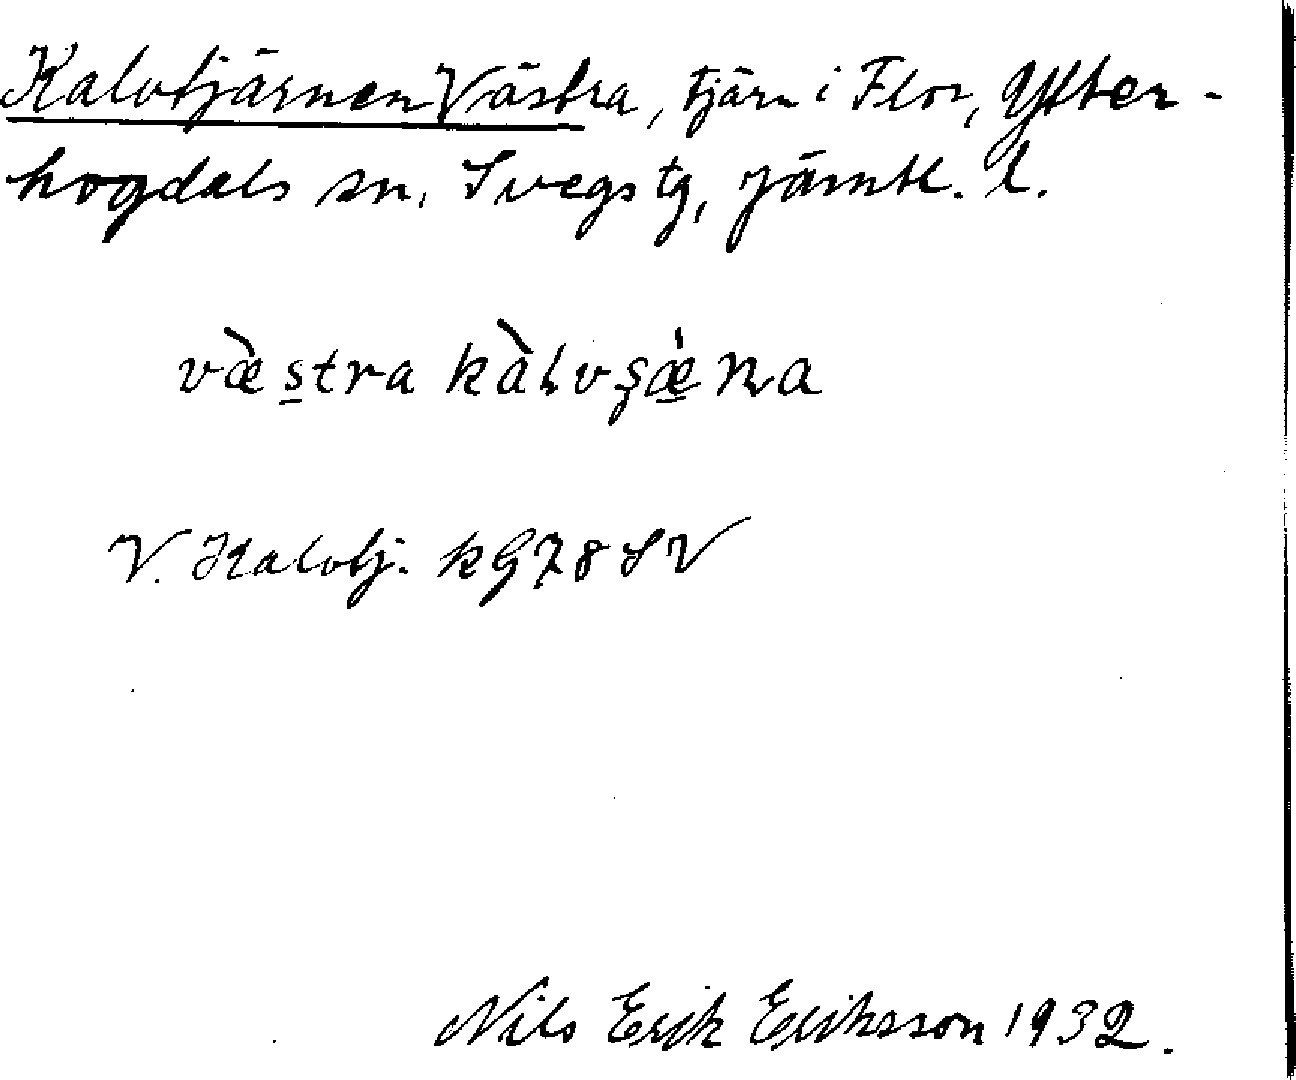 Kalvtjärnen Västra, tjärn i Flor, Ytter-
hogdals sn, Svegs tg, Jämtl. l.
væ̀stra kàlvşæ̀ṇa
V. Kalvtj. kG78SV
Nils Erik Eriksson 1932.